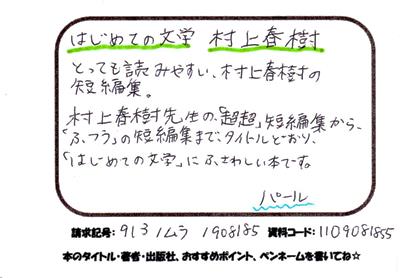 はじめての文学 村上春樹
とっても読みやすい、村上春樹の
短編集。
村上春樹先生の、「超超」短編集から、
「ふつう」の短編集まで、タイトルどおり、
「はじめての文学」にふさわしい本です。
パール
請求記号:913 ノムラ 1908185 資料コード:1109081855
本のタイトル・著者・出版社、おすすめポイント、ペンネームを書いてね☆